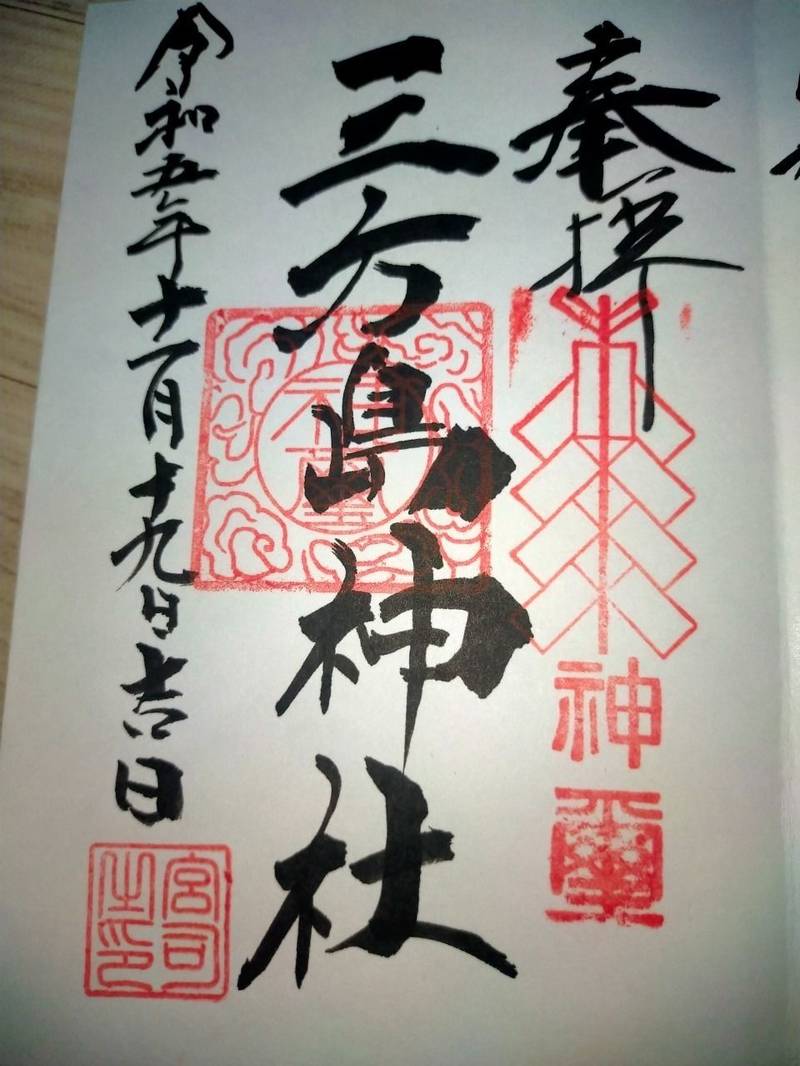 奉拝
神璽
三方島神社
令和五年十一月十九日吉日
宮司之印